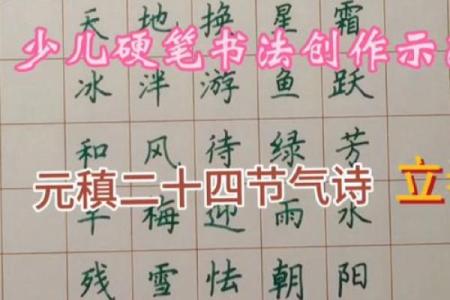 天地换星霜
少儿硬笔书法创作示
冰泮游鱼跃
和风待绿芳
元稹二十四节气诗 立
梅迎雨水
残雪怯朝阳